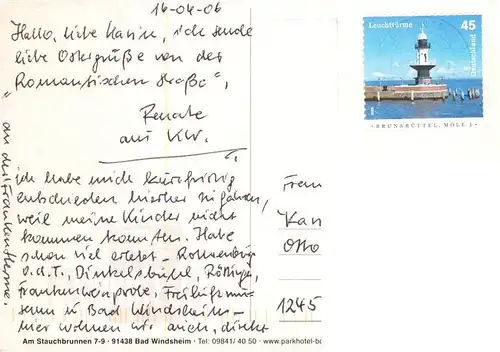 16-04-06
Hallo, liebe Karin, ich sende
liebe Ostergrüße von der
Romantischen Straße",
Renate
aus KW.
ich habe mich kurzfristig
entschieden hierher zu fahren,
weil meine Kinder nicht
kommen konnten. Habe
schon viel erlebt - Rothenburg
o.d.T., Dinkelsbühl, Röttingen,
Frankenweinprobe, Freiluftmu-
seum in Bad Windsheim -
hier wohnen wir auch, direkt
" an der Franken Therme.
Am Stauchbrunnen 7-9 · 91438 Bad Windsheim · Tel: 09841/ 40 50 · www.parkhotel-b
Leuchttürme
45
Deutschland
BRUNSBÜTTEL, MOLE 1
Frau
Kar
Otto
1245